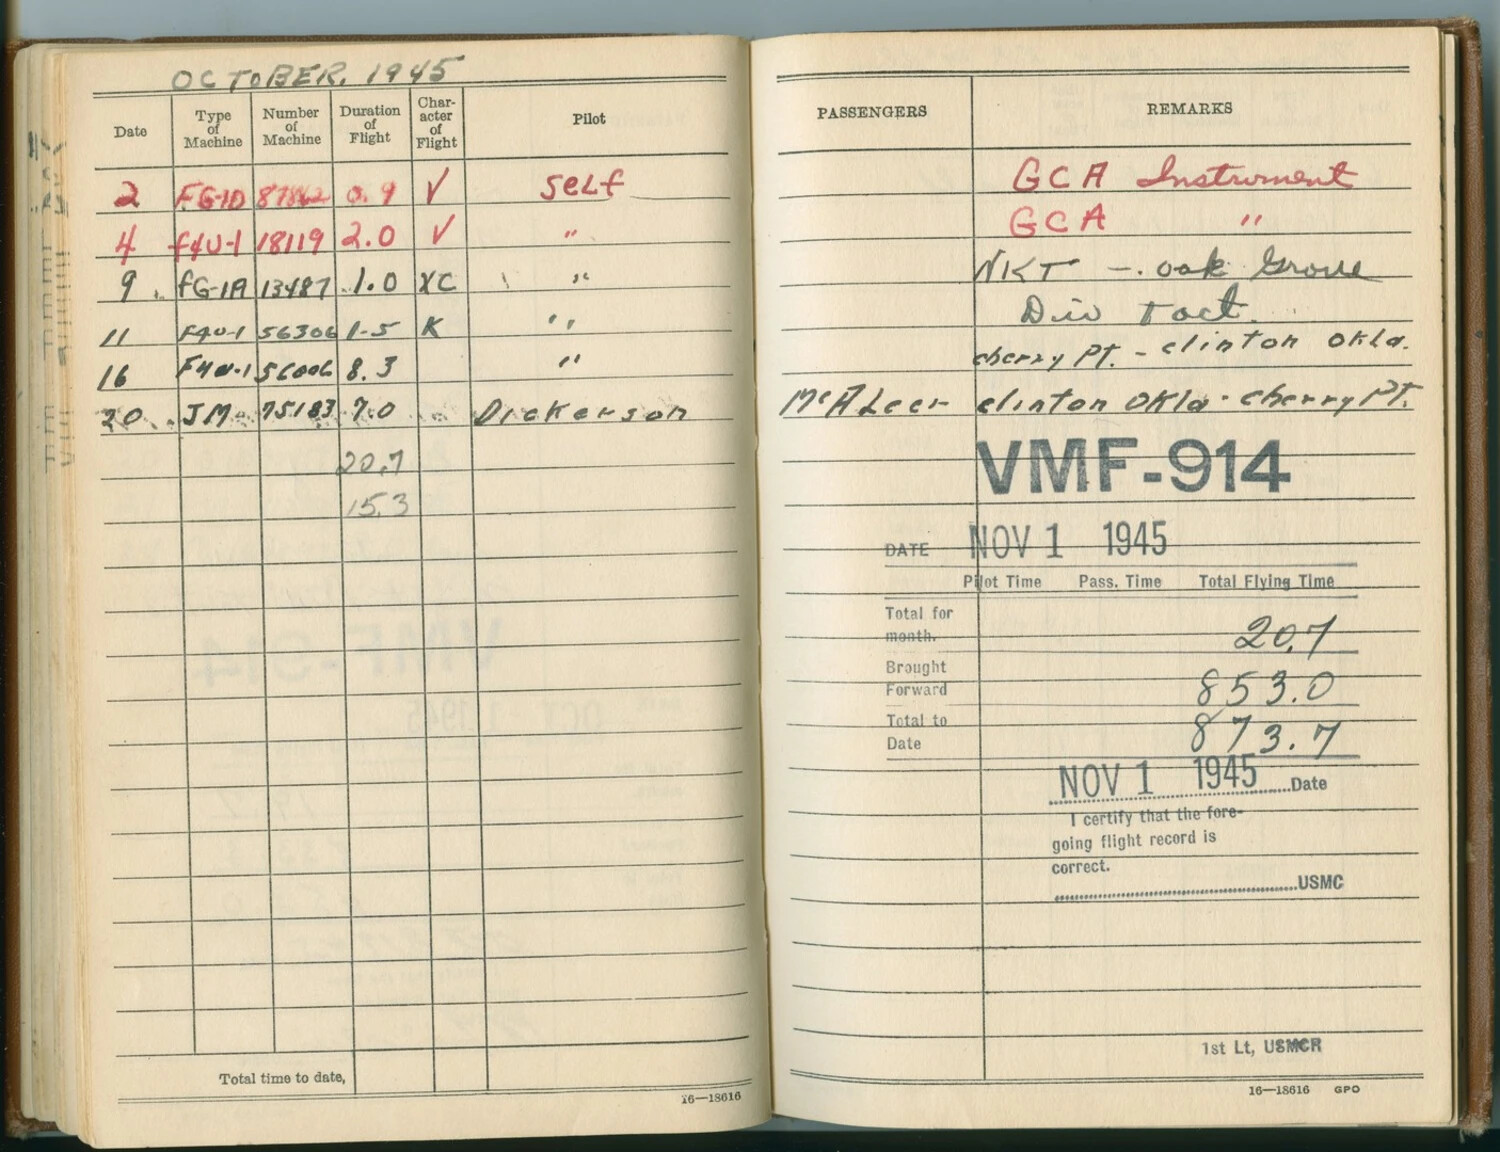 OCTOBER, 1945
Date Type of Machine Number of Machine Duration of Flight Character of Flight Pilot
2 FG-1D 87862 0.9 V SELF
4 F4U-1 18119 2.0 V "
9 FG-1A 13487 1.0 XC "
11 F4U-1 56306 1-5 K "
16 F4U-1 56006 8.3 "
20 JM 75183 7.0 Dickerson
20.7
15.3
Total time to date,
16—18616
PASSENGERS REMARKS
GCA Instrument
GCA "
NKT - oak Grove
Div Tact.
cherry Pt. - clinton Okla.
McALeer clinton OKla - cherry PT.
VMF-914
DATE NOV 1 1945
Pilot Time Pass. Time Total Flying Time
Total for
month. 20.7
Brought
Forward 853.0
Total to
Date 873.7
NOV 1 1945 Date
I certify that the fore-
going flight record is
correct.
USMC
1st Lt, USMCR
16—18616 GPO